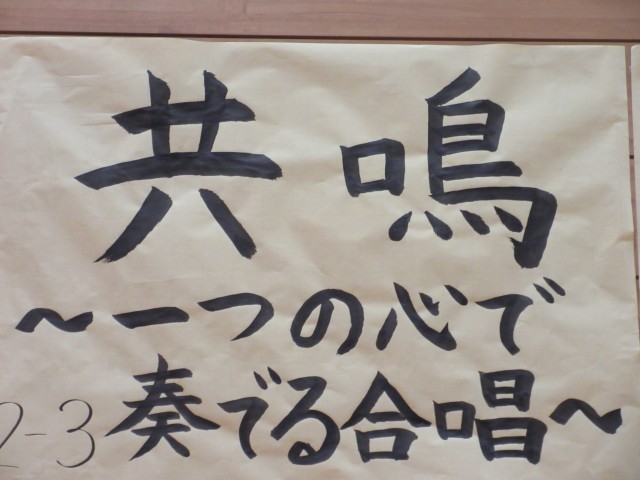 共鳴
～一つの心で
奏でる合唱～
2-3